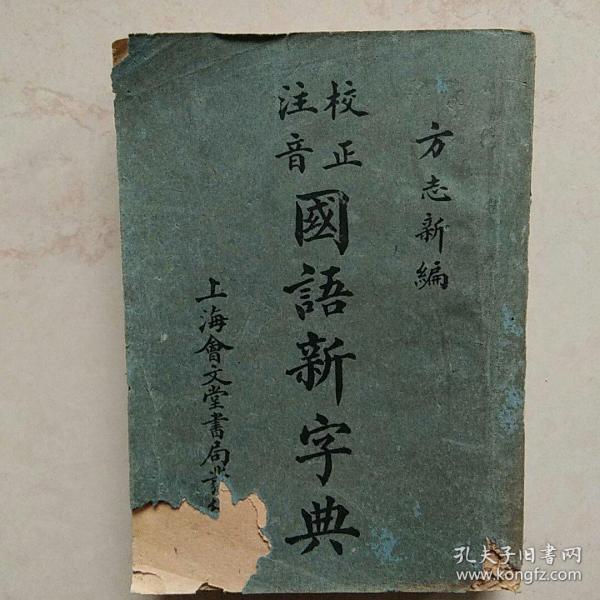 方志新編
校正
注音
國語新字典
上海會文堂書局
孔夫子旧书网
www.kongfz.com